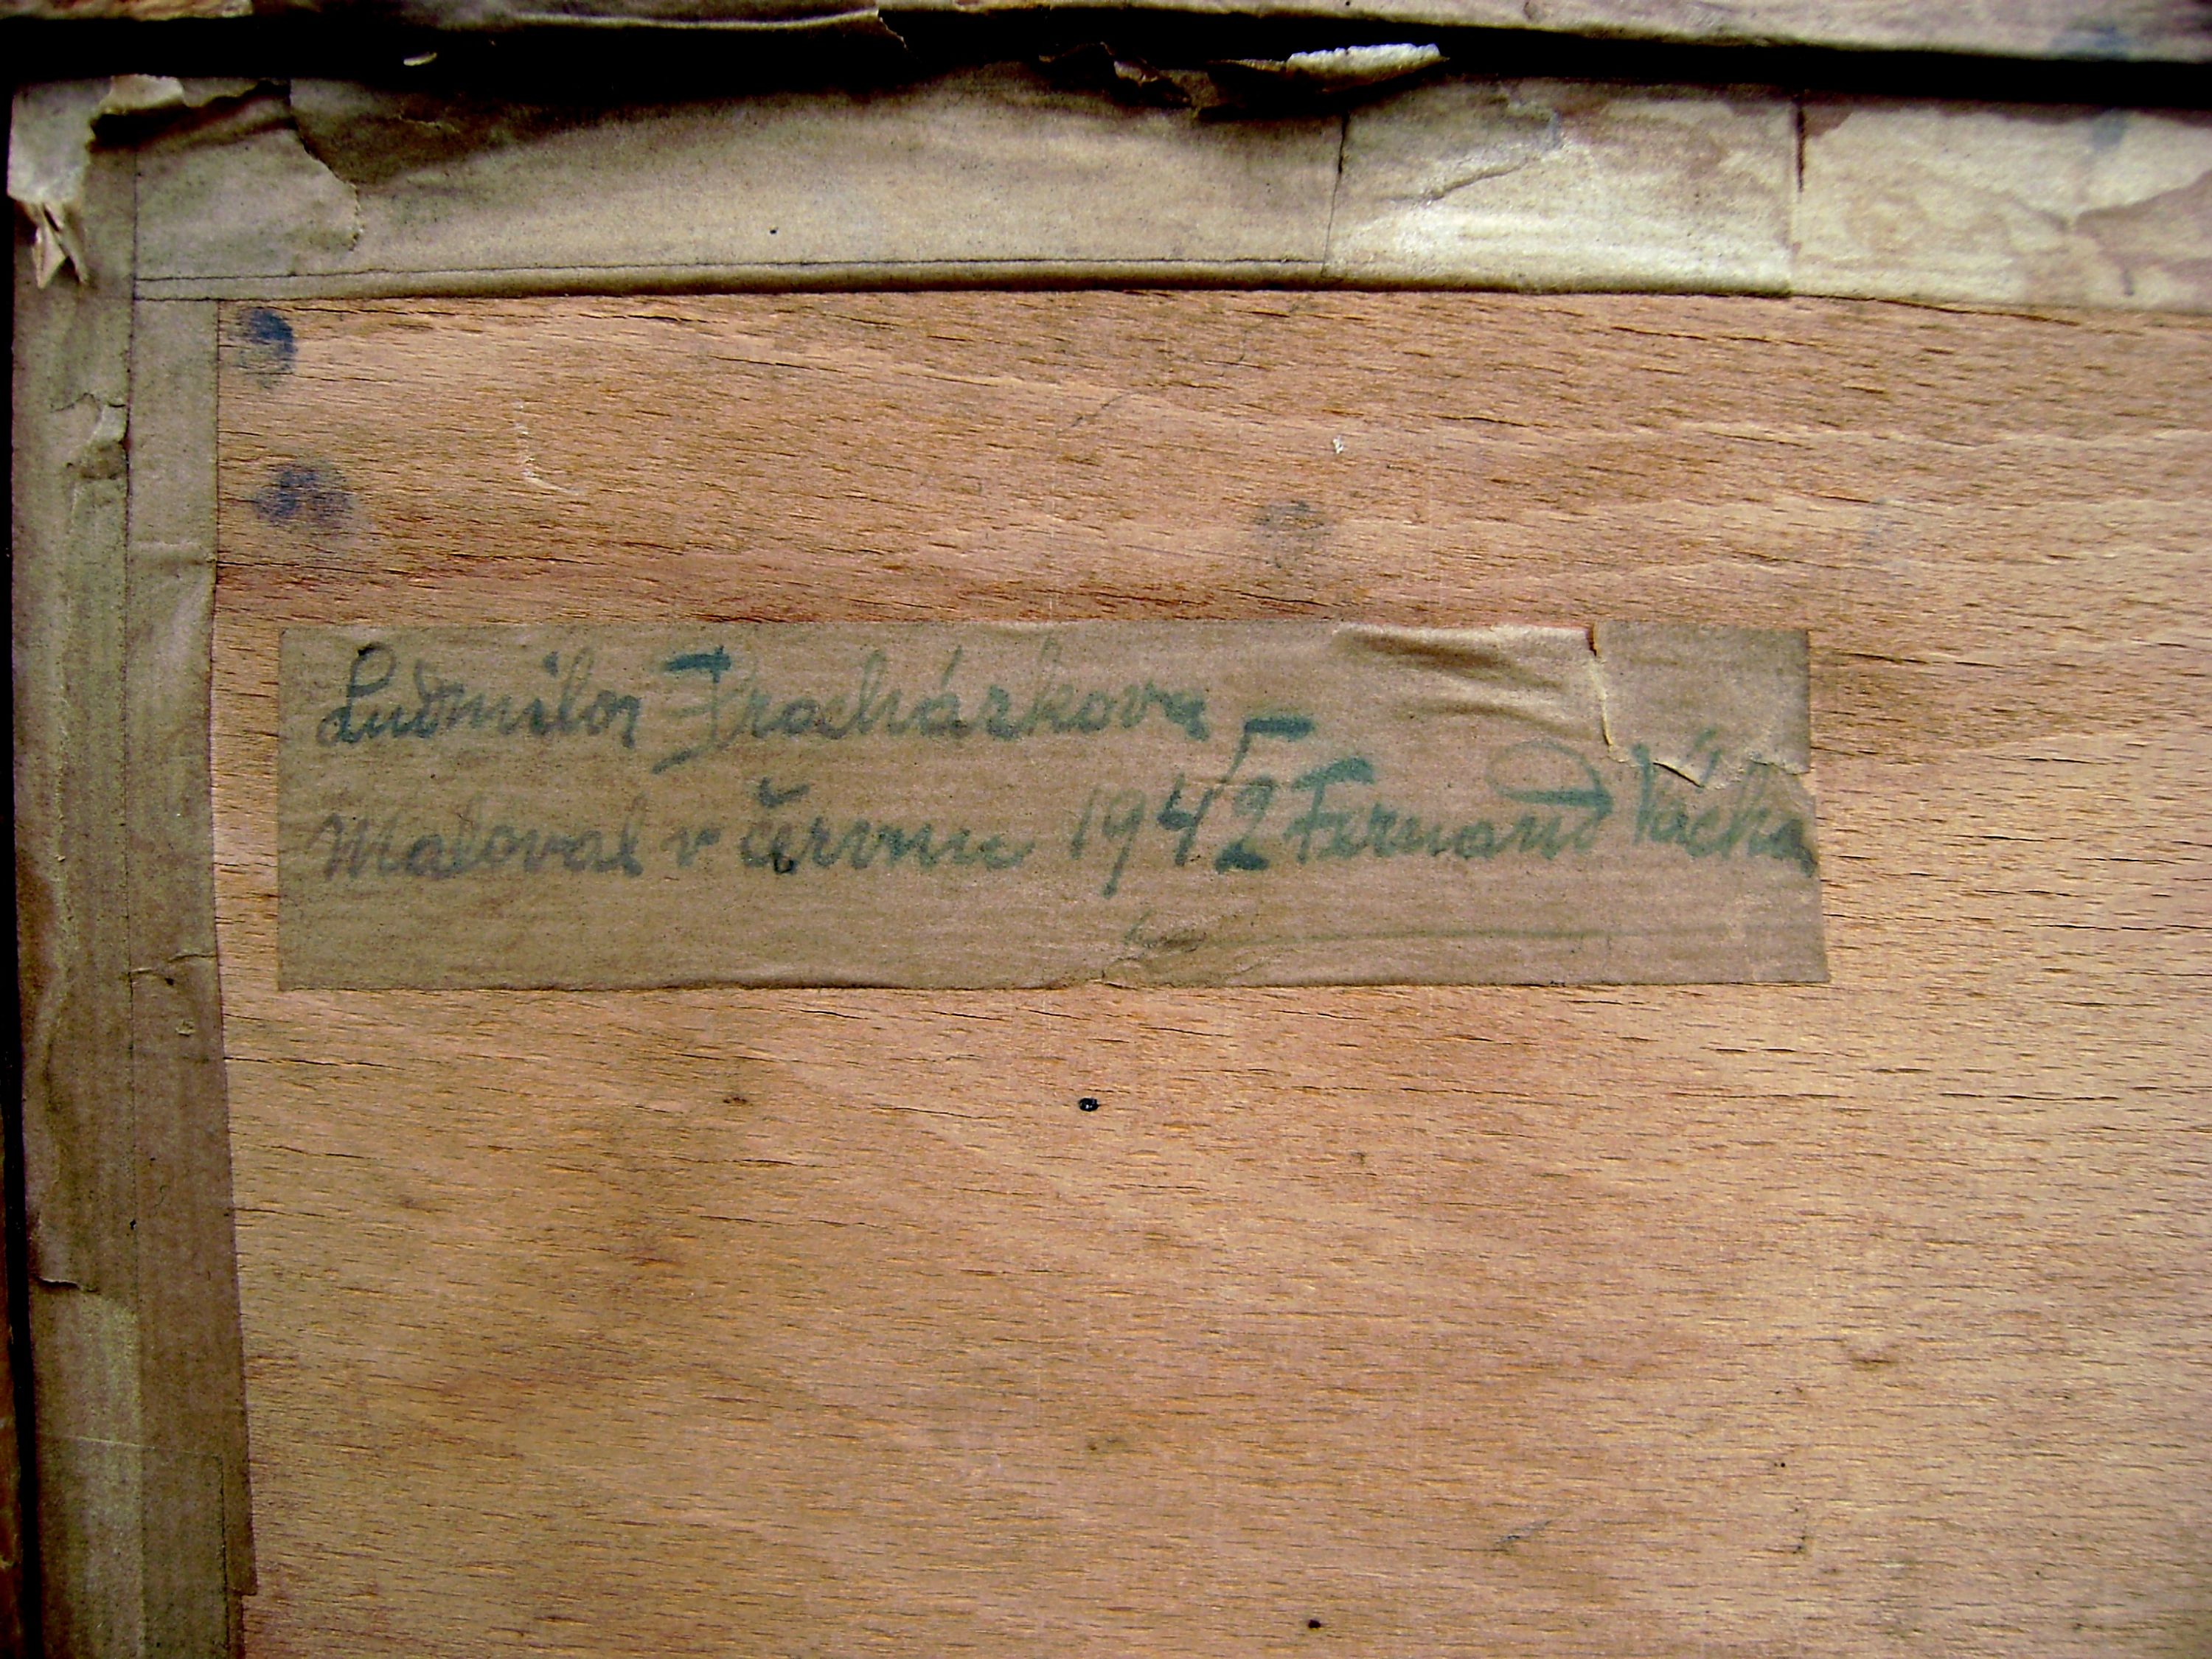 Ludmila Prachárkova
Maloval v červnu 1942 Fernand Vácha